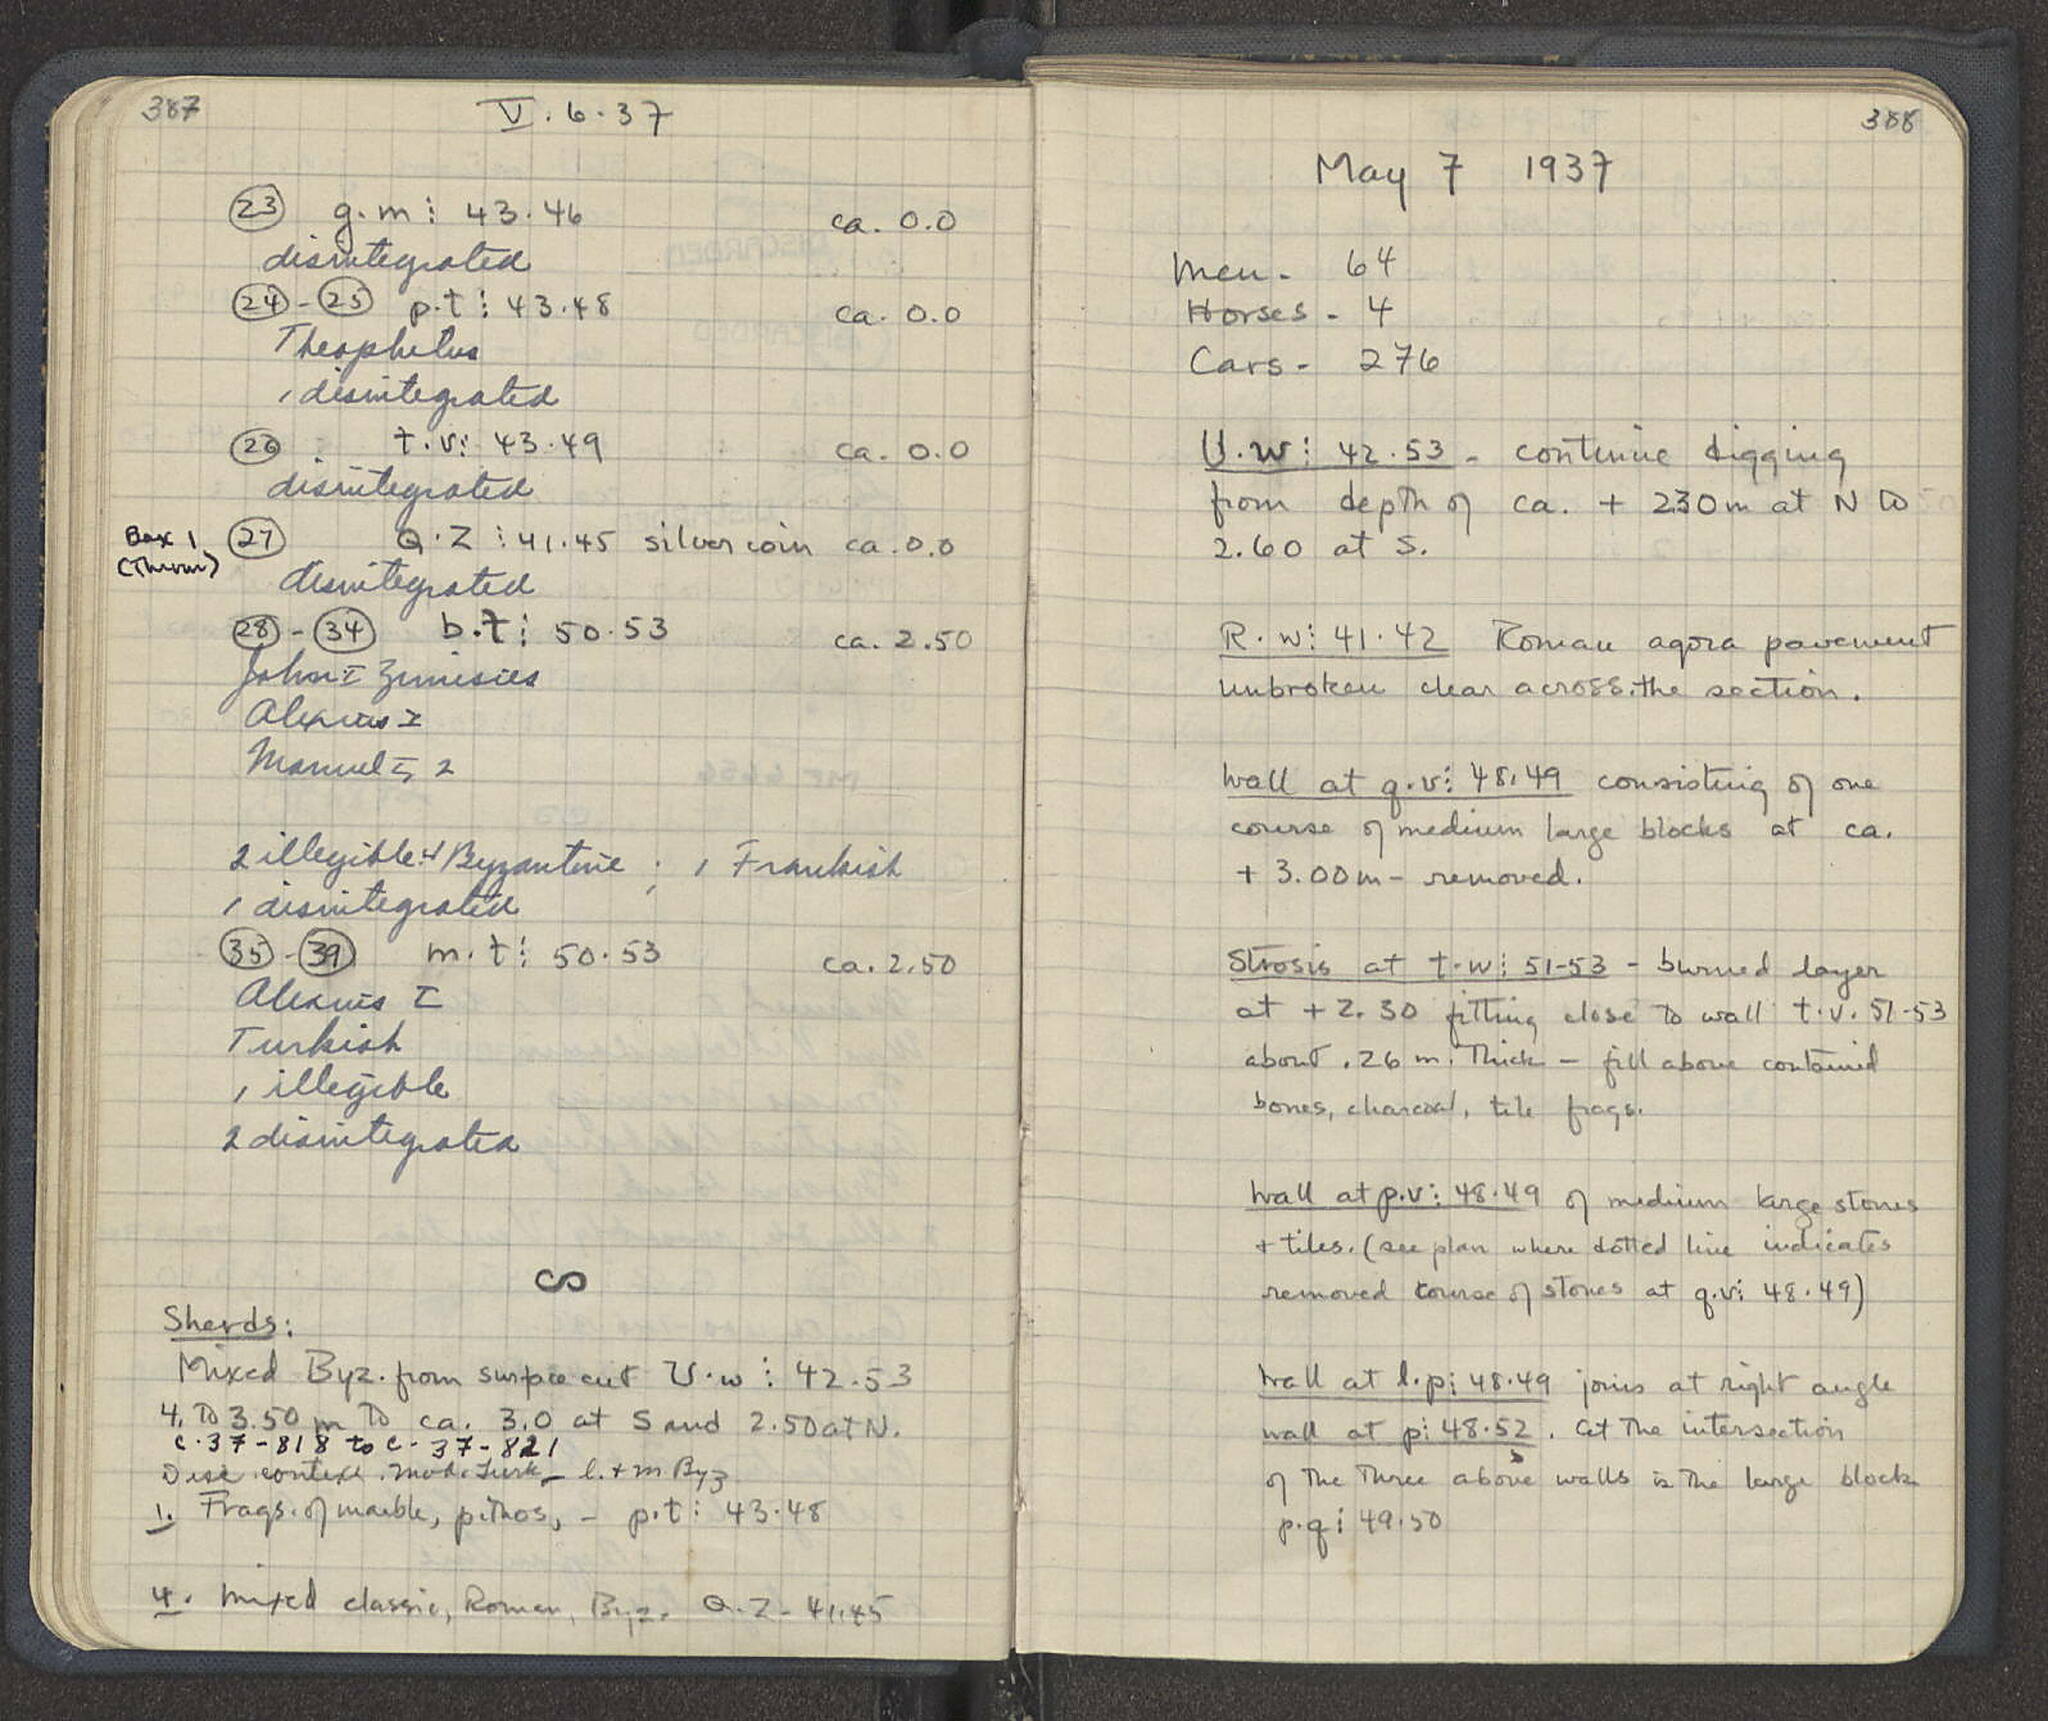 387
V. 6. 37
(23) g.m: 43.46 ca. 0.0
disintegrated
(24) - (25) p.t: 43.48 ca. 0.0
Theophilus
1 disintegrated
(26) t.v: 43.49 ca. 0.0
disintegrated
Box 1 (27) Q.Z: 41.45 silver coin ca. 0.0
disintegrated
(28) - (34) b.t: 50.53 ca. 2.50
John I Zimisces
Alexius I
Manuel I, 2
2 illegible: Byzantine; 1 Frankish
1 disintegrated
(35) - (39) m.t: 50.53 ca. 2.50
Alexius I
Turkish
1 illegible
2 disintegrated
Sherds:
Mixed Byz. from surface cut U.w: 42.53
4. to 3.50 m to ca. 3.0 at S and 2.50 at N.
C-37-818 to C-37-821
Disc. context. mod. Turk - l. + m Byz
1. Frags. of marble, pithos, - p.t: 43.48
4. Mixed classic, Roman, Byz. Q.Z - 41.45
388
May 7 1937
Men - 64
Horses - 4
Cars - 276
U.w: 42.53 - continue digging
from depth of ca. + 230m at N to
2.60 at S.
R.w: 41.42 Roman agora pavement
unbroken clear across the section.
Wall at q.v: 48.49 consisting of one
course of medium large blocks at ca.
+ 3.00m - removed.
Strosis at t.w: 51-53 - burned layer
at + 2.30 fitting close to wall t.v. 51-53
about .26 m. thick - fill above contained
bones, charcoal, tile frags.
Wall at p.v: 48.49 of medium large stones
+ tiles. (see plan where dotted line indicates
removed course of stones at q.v: 48.49)
Wall at l.p: 48.49 joins at right angle
wall at p: 48.52. At the intersection
of the three above walls is the large block
p.q: 49.50